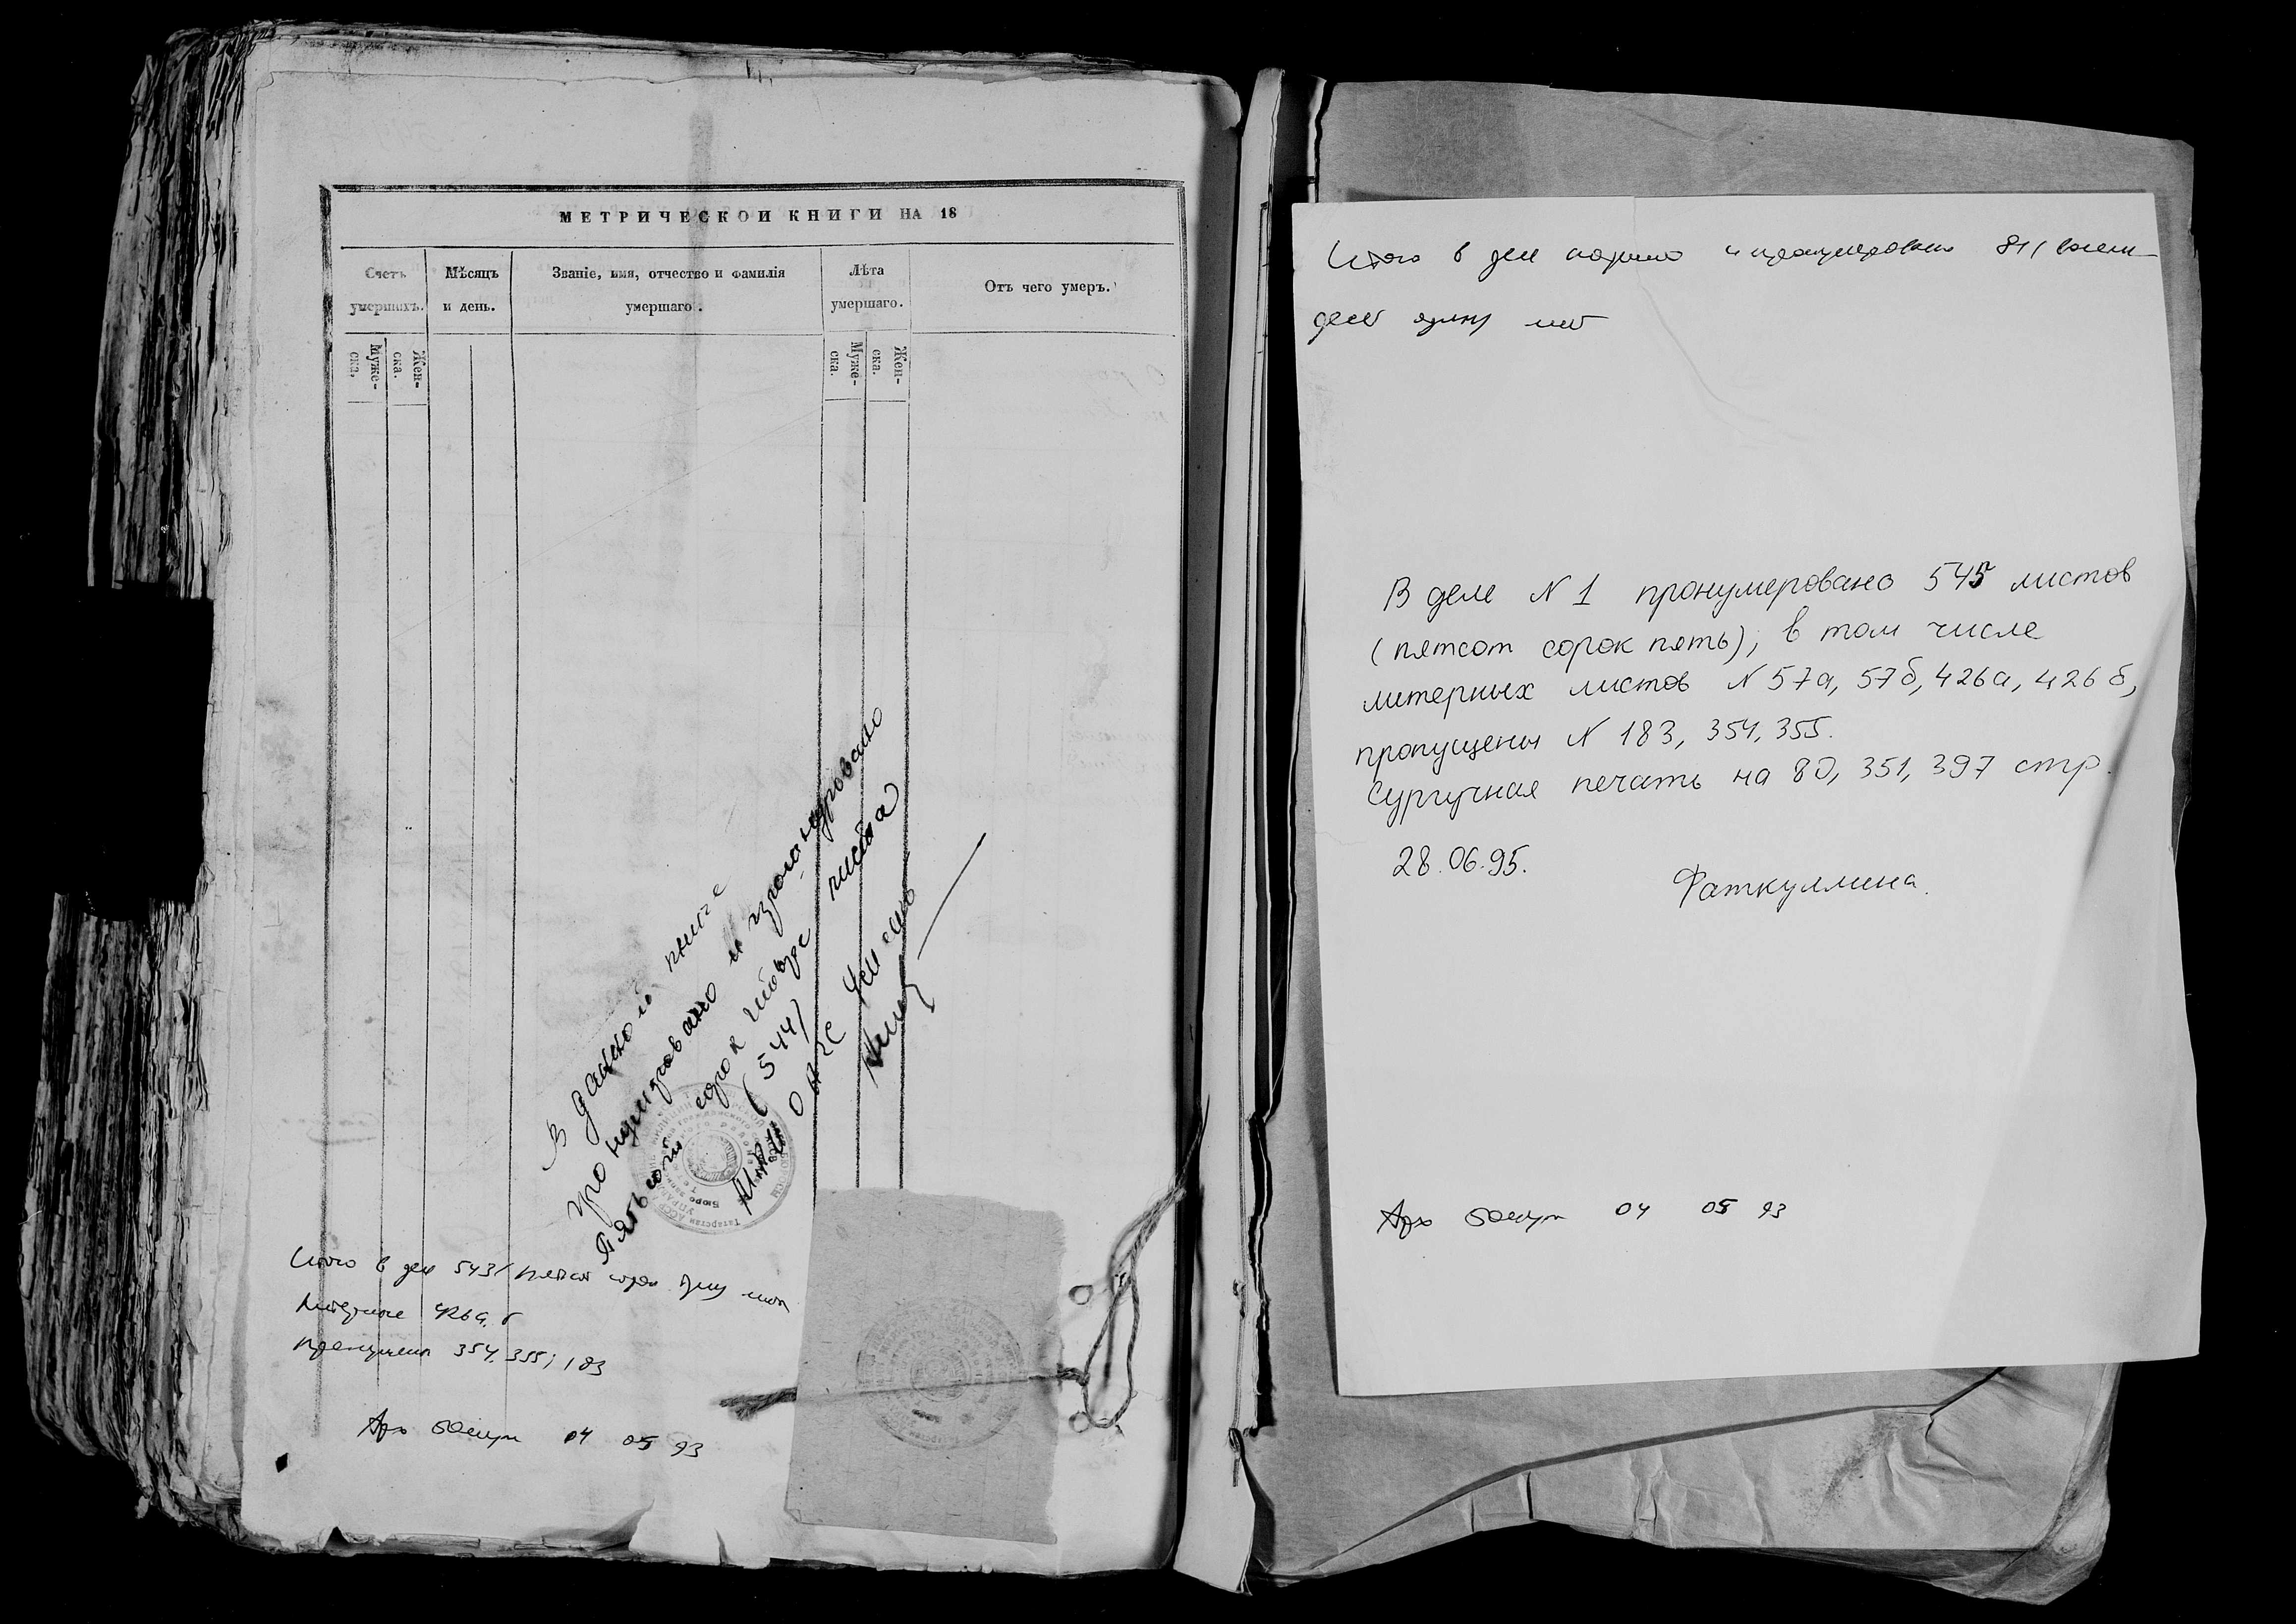 МЕТРИЧЕСКОЙ КНИГИ НА 18
Счетъ умершихъ.
Муже-
ска.
Жен-
ска.
Мѣсяцъ
и день.
Званіе, имя, отчество и фамилія
умершаго.
Лѣта
умершаго.
Муже-
ска.
Жен-
ска.
Отъ чего умеръ.
В данной книге
пронумеровано и прошнуровано
Пятьсот сорок четыре листа
(544)
Итого в деле 543/ пятсот сорок три лист
Литерные 426а, б
пропущены 354, 355; 183
Арх 04 05 93
Итого в деле подшито и пронумеровано 81/ восем-
десят один лист
В деле N 1 пронумеровано 545 листов
(пятсот сорок пять), в том числе
литерных листов N 57а, 57б, 426а, 426б,
пропущены N 183, 354, 355.
Сургучная печать на 80, 351, 397 стр.
28.06.95.
Фаткуллина.
Арх 04 05 93